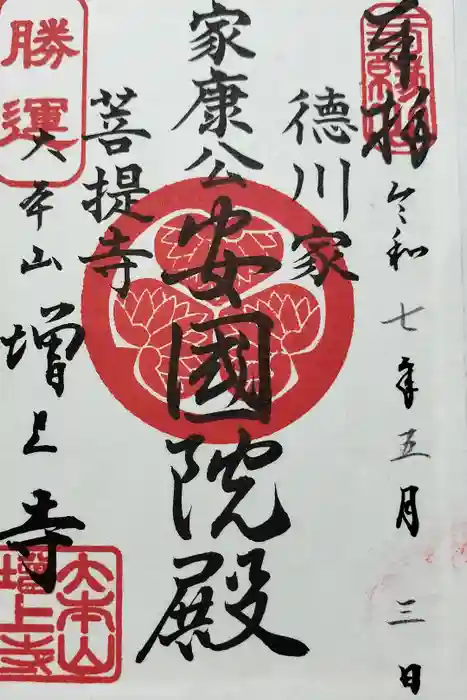 奉拝
令和七年五月三日
徳川家
家康公
安國院殿
菩提寺
勝運
大本山
増上寺
大本山
増上寺